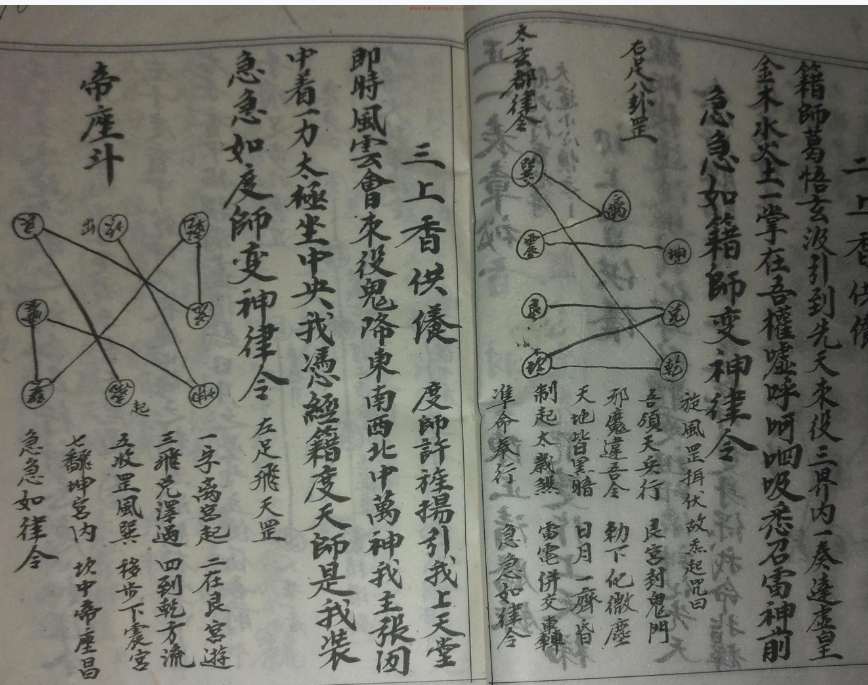 二上香供儀
籍師葛悟玄汲引到先天來役三界内一奏達虛皇
金木水火土一掌在吾權噓呼呵呬吸悉召雷神前
急急如籍師變神律令
旋風罡揖伏故炁起咒曰
吾領天兵行 艮宮封鬼門
邪魔違吾令 勅下化微塵
天地皆黑暗 日月一齊昏
制起太歲煞 雷電併交轟
準命奉行 急急如律令
右足八卦罡
巽 離 坤
震 兌
艮 坎 乾
太玄都律令
三上香供儀
度師許旌揚引我上天堂
即時風雲會來役鬼降東南西北中萬神我主張囬
中着一力太極坐中央我憑經籍度天師是我裝
急急如度師變神律令
左足飛天罡
一步离宮起 二在艮宮遊
三飛兌澤過 四到乾方流
五收罡風巽 移步下震宮
七翻坤宮内 坎中帝座昌
急急如律令
帝座斗
出
起